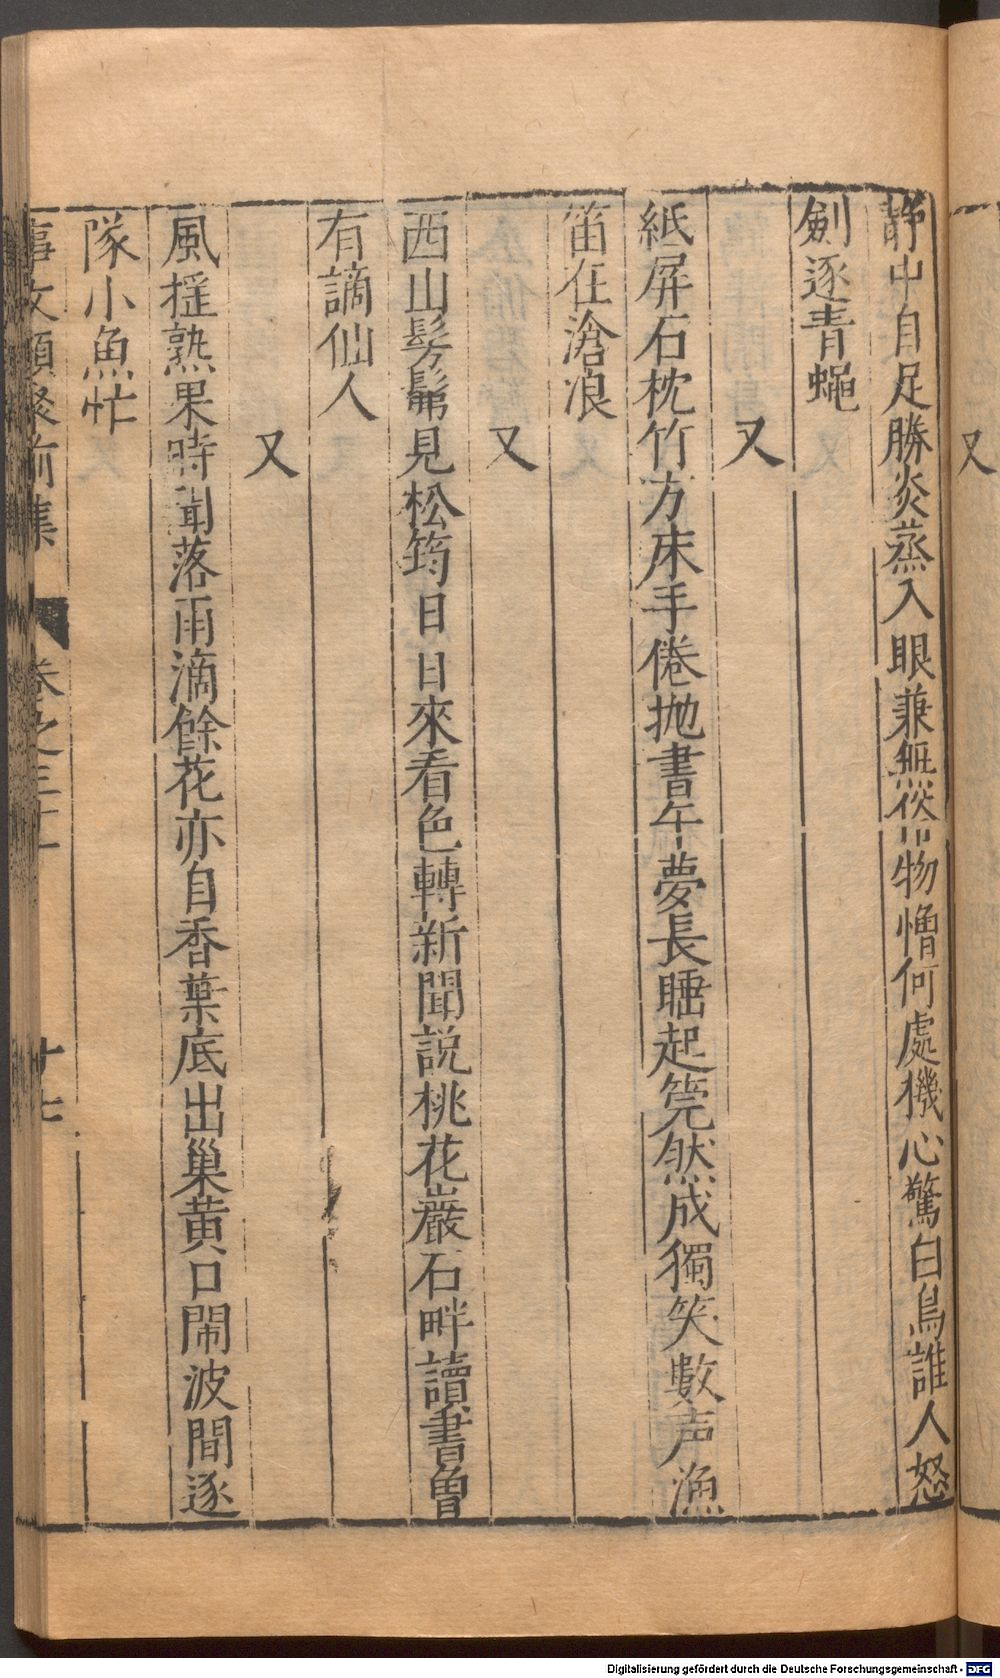 又
靜中自足勝炎蒸入眼兼無俗物憎何處機心驚白鳥誰人怒
劍逐青蠅
又
紙屏石枕竹方床手倦抛書午夢長睡起筦然成獨笑數声漁
笛在滄浪
又
西山髣髴見松筠日日來看色轉新聞説桃花巖石畔讀書曾
有謫仙人
又
風揺熟果時聞落雨滴餘花亦自香葉底出巢黄口閙波間逐
隊小魚忙
事文類聚前集
卷之三十
十七
Digitalisierung gefördert durch die Deutsche Forschungsgemeinschaft - DFG